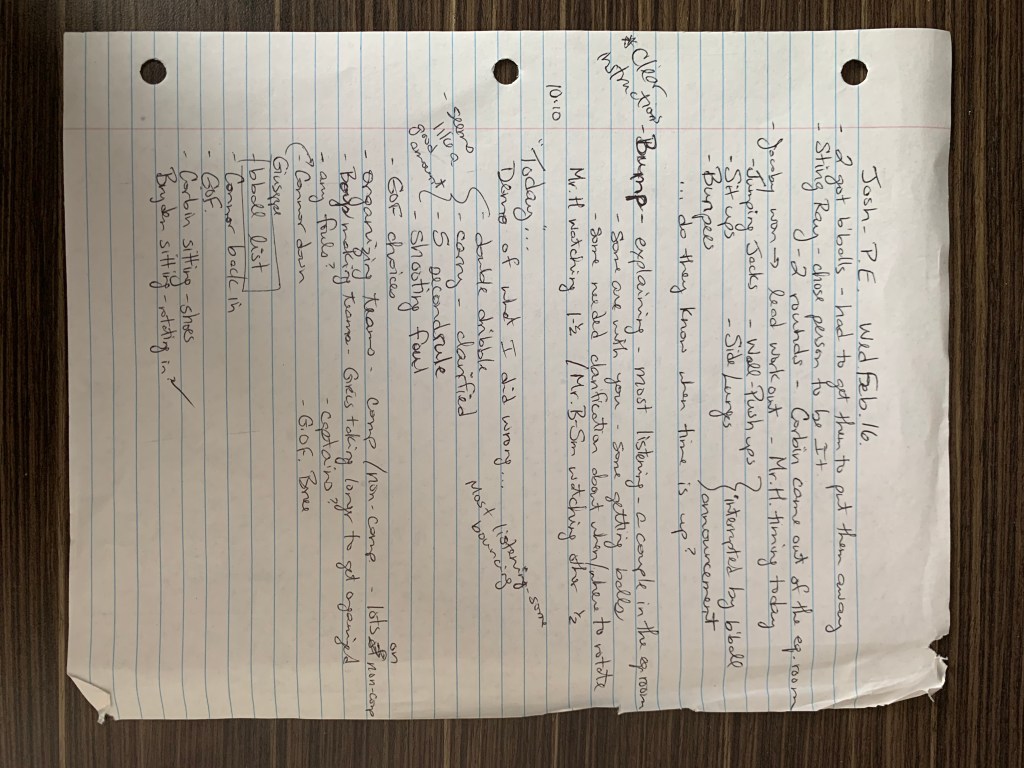 Josh - P.E. Wed Feb. 16.
- 2 got b'balls - had to get them to put them away
- Sting Ray - chose person to be It
- 2 rounds - Corbin came out of the eq. room
- Jacoby won → lead workout - Mr. H. timing today
- Jumping Jacks - Wall-Push ups
- Sit ups - Side lunges
- Burpees
interrupted by b'ball announcement
... do they know when time is up?
* Clear instructions
- Bump - explaining - most listening - a couple in the eq. room
- some are with you - some getting balls
- some needed clarification about when/where to rotate
Mr. H watching 1 ½ / Mr. B-Sm watching other ½
10:10
"Today"...
Demo of what I did wrong...
listening - some
Most bouncing
- seems like a good amount
- double dribble
- carry - clarified
- 5 second rule
- shooting foul
- GOF choices
- organizing teams - comp/non-comp - lots on non-comp
- Boys making teams - Girls taking longr to get organized
- any fouls? - captains?
→ Connor down - G.O.F. Bree
Giuseppe
b'ball list
- Connor back in
- GOF.
- Corbin sitting - shoes
Bryden sitting - rotating in ✓